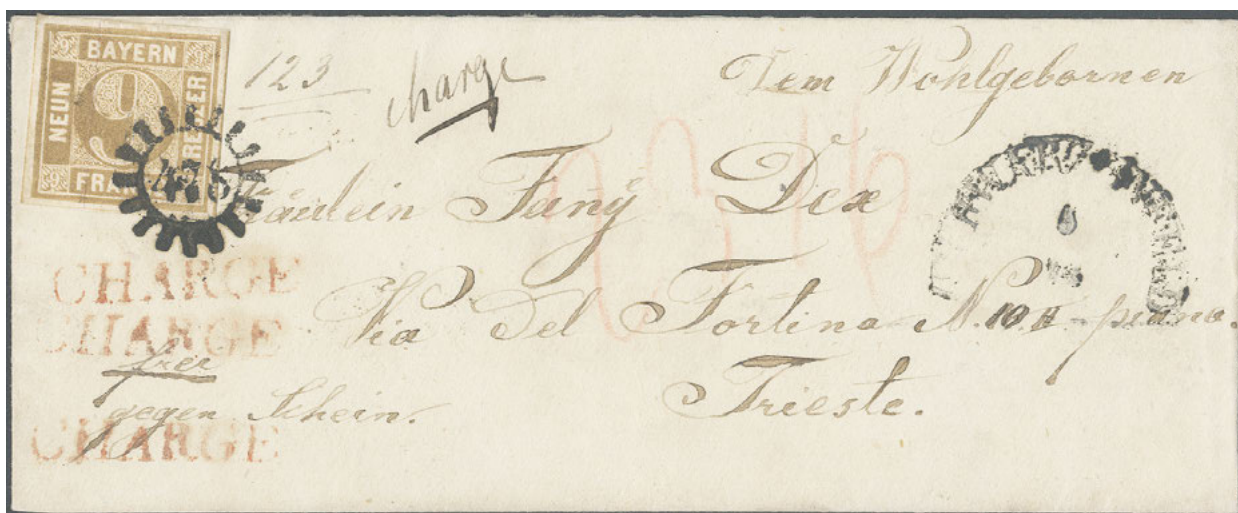 BAYERN
NEUN
KREUZER
FRANCO
9
478
123
charge
Dem Wohlgebornen
Fräulein Fany Dex
Via Del Fortino N. 10 II piano.
Trieste.
CHARGE
CHARGE
frei
gegen Schein.
CHARGE